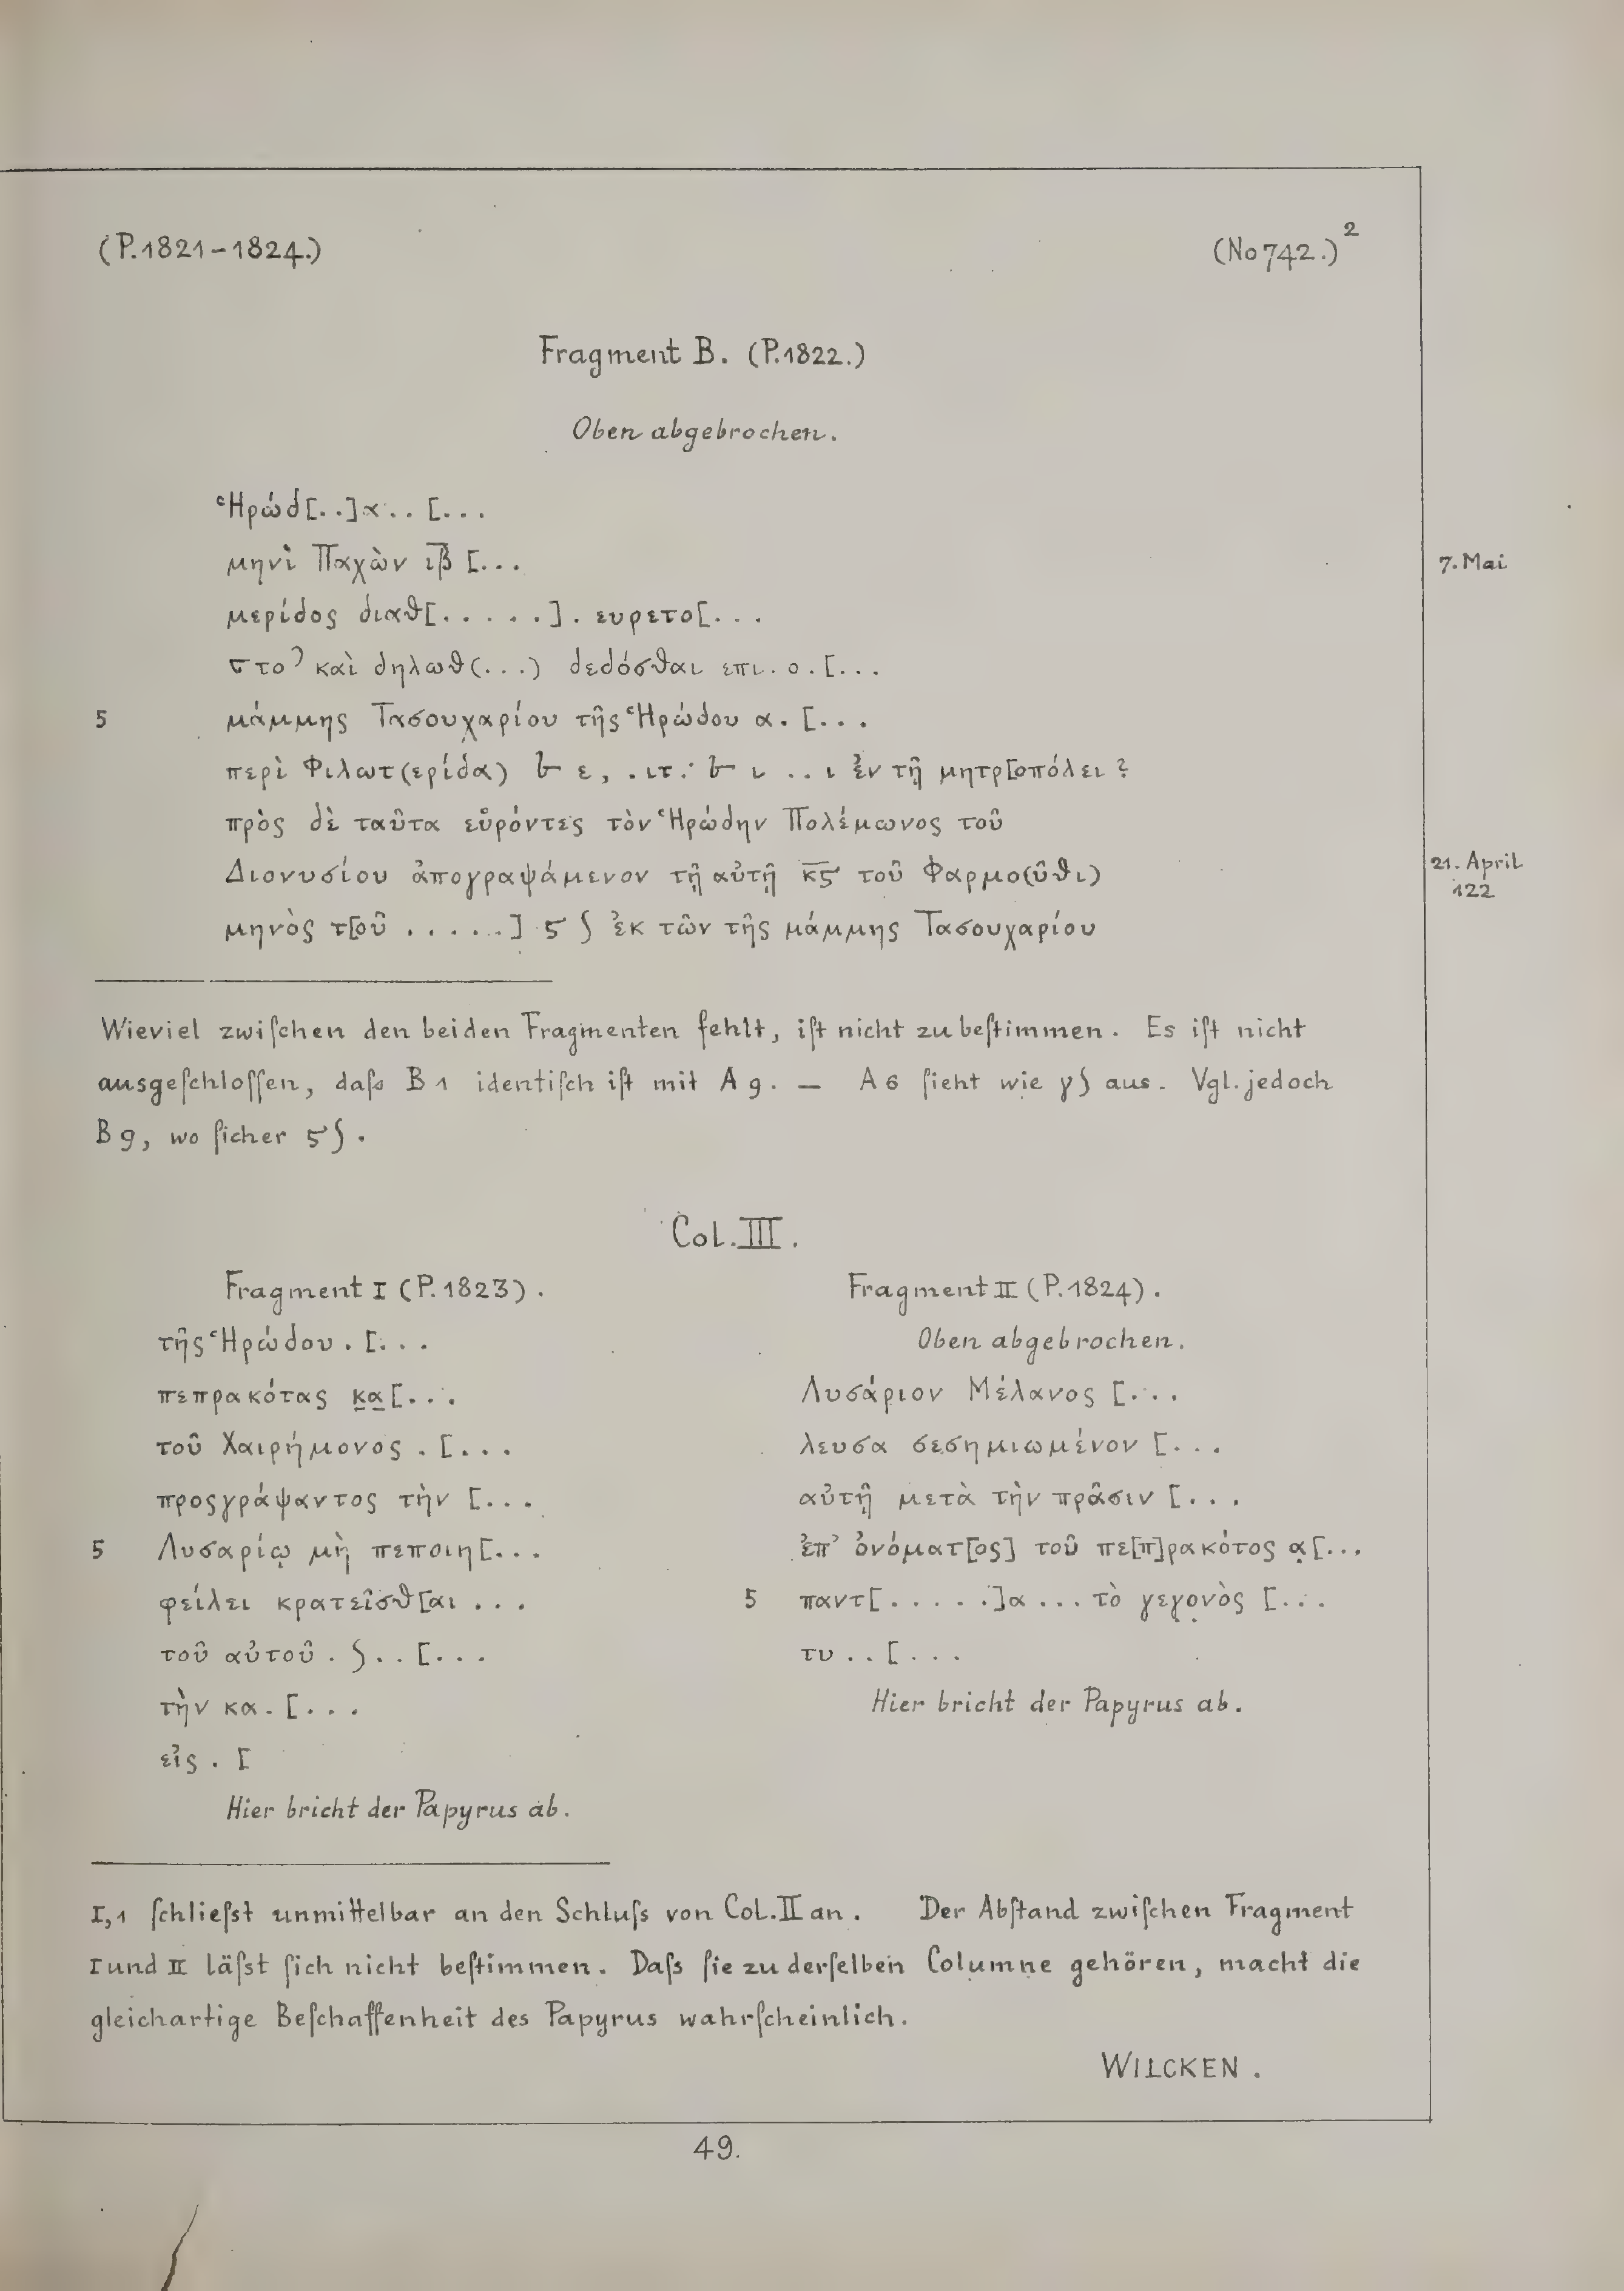 (P. 1821-1824.)
(No 742.)²
Fragment B. (P. 1822.)
Oben abgebrochen.
Ἡρώδ[..]α.. [...
μηνὶ Παχὼν ι̅β̅ [...
7. Mai
μερίδος διαθ[.....]. ευρετο[...
καὶ δηλωθ(...) δεδόσθαι επι.ο.[...
5 μάμμης Τασουχαρίου τῆς Ἡρώδου α. [...
περὶ Φιλωτ(ερίδα) ε, .ιτ. ι ..ι ἐν τῇ μητρ[οπόλει?
πρὸς δὲ ταῦτα εὑρόντες τὸν Ἡρώδην Πολέμωνος τοῦ
Διονυσίου ἀπογραψάμενον τῇ αὐτῇ κ̅ϛ̅ τοῦ Φαρμο(ῦθι)
21. April
122
μηνὸς τ[οῦ .....] ϛ ∫ ἐκ τῶν τῆς μάμμης Τασουχαρίου
Wieviel zwiſchen den beiden Fragmenten fehlt, iſt nicht zu beſtimmen. Es iſt nicht
ausgeſchloſſen, daſs B 1 identiſch iſt mit A 9. — A 6 ſieht wie γ∫ aus. Vgl. jedoch
B 9, wo ſicher ϛ∫.
Col. III.
Fragment I (P. 1823).
τῆς Ἡρώδου . [...
πεπρακότας κ̣α̣[...
τοῦ Χαιρήμονος . [...
προςγράψαντος τὴν [...
5 Λυσαρίῳ μὴ πεποιη[...
φείλει κρατεῖσθ[αι ...
τοῦ αὐτοῦ . ∫..[...
τὴν κα. [...
εἰς . [
Hier bricht der Papyrus ab.
Fragment II (P. 1824).
Oben abgebrochen.
Λυσάριον Μέλανος [...
λευσα σεσημιωμένον [...
αὐτῇ μετὰ τὴν πρᾶσιν [...
ἐπ' ὀνόματ[ος] τοῦ πε[π]ρακότος α̣[...
5 παντ[.....]α ... τὸ γεγ̣ο̣νὸς [...
τυ .. [...
Hier bricht der Papyrus ab.
I,1 ſchlieſst unmittelbar an den Schluſs von Col. II an. Der Abſtand zwiſchen Fragment
I und II läſst ſich nicht beſtimmen. Daſs ſie zu derſelben Columne gehören, macht die
gleichartige Beſchaffenheit des Papyrus wahrſcheinlich.
WILCKEN.
49.